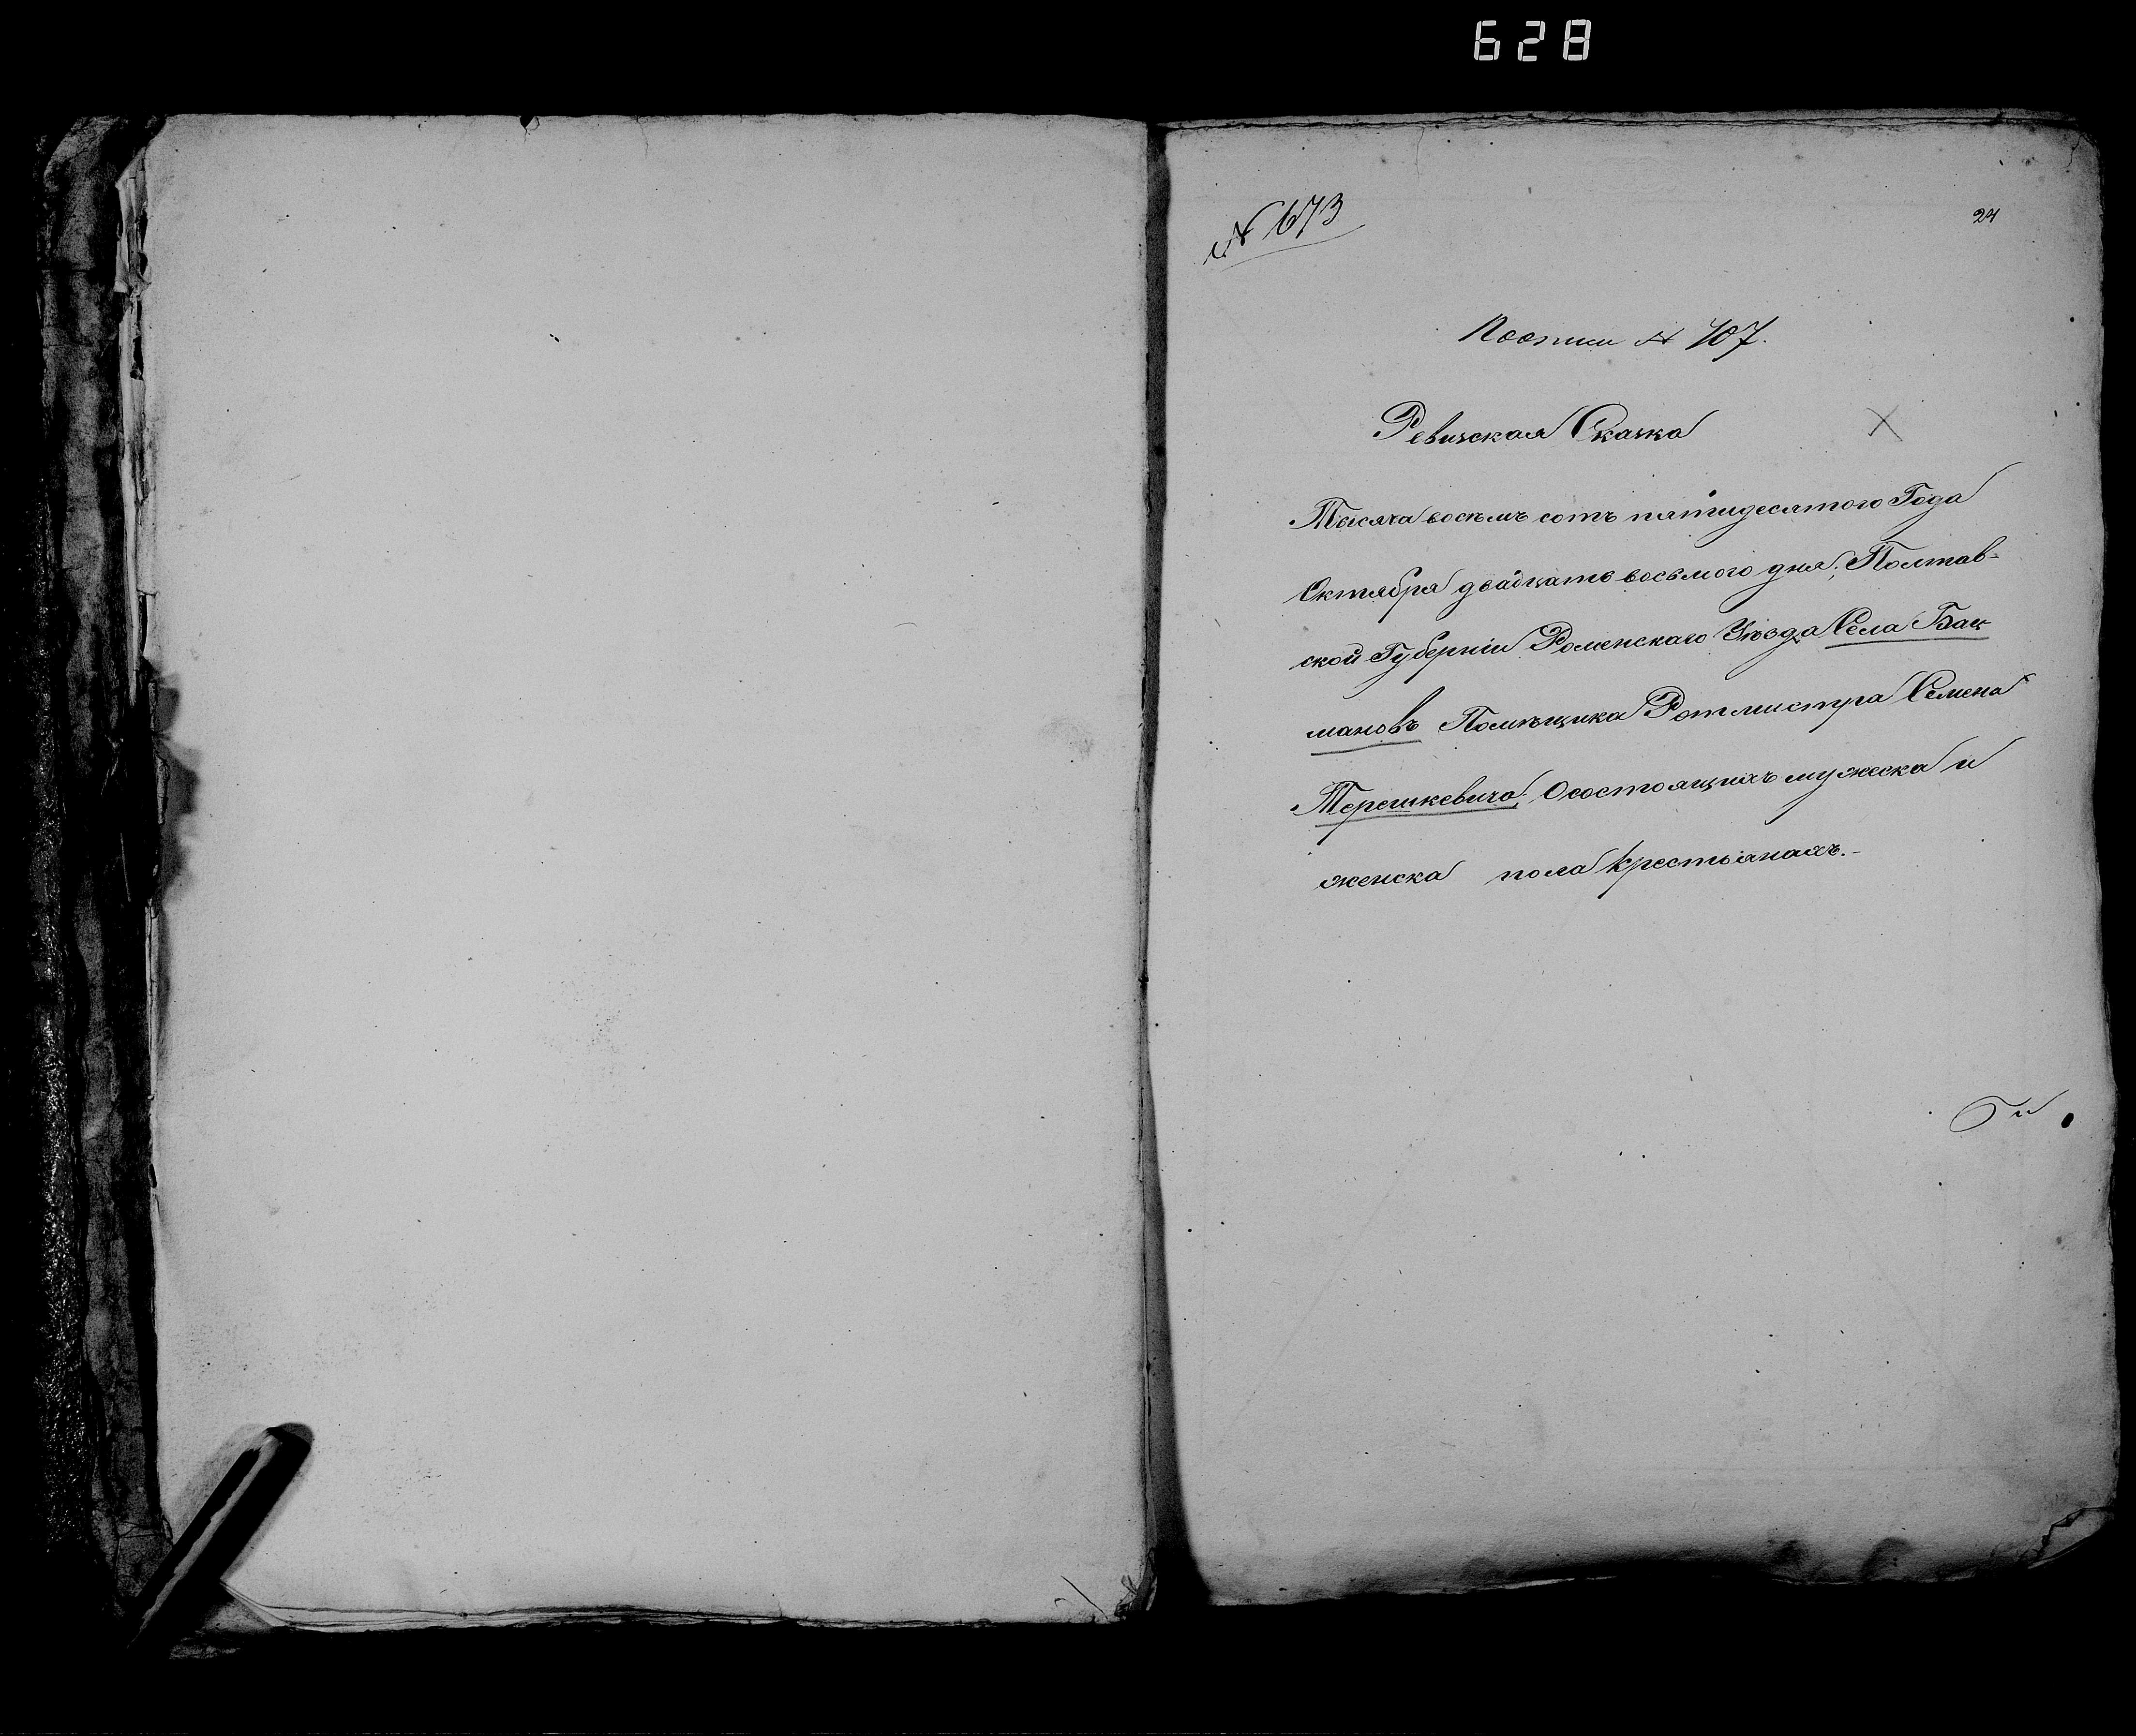 628
№ 673
24
Почтии № 107.
Ревизская Сказка
Тысяча восемь сотъ пятидесятого Года
Октября двадцать восьмого дня; Полтав-
ской Губерніи Роменскаго Уѣзда Села Бац
мановъ Помѣщика Ротмистра Семена
Терешкевича; О состоящихъ мужеска и
женска пола крестьянахъ.-